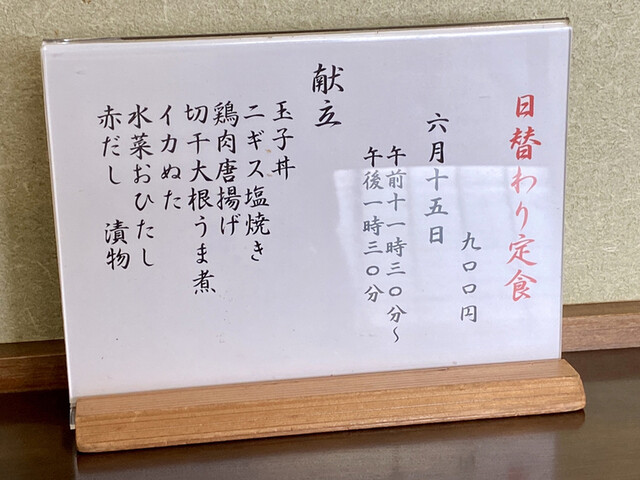 日替わり定食
九〇〇円
六月十五日
午前十一時三〇分～
午後一時三〇分
献立
玉子丼
ニギス塩焼き
鶏肉唐揚げ
切干大根うま煮
イカぬた
水菜おひたし
赤だし 漬物